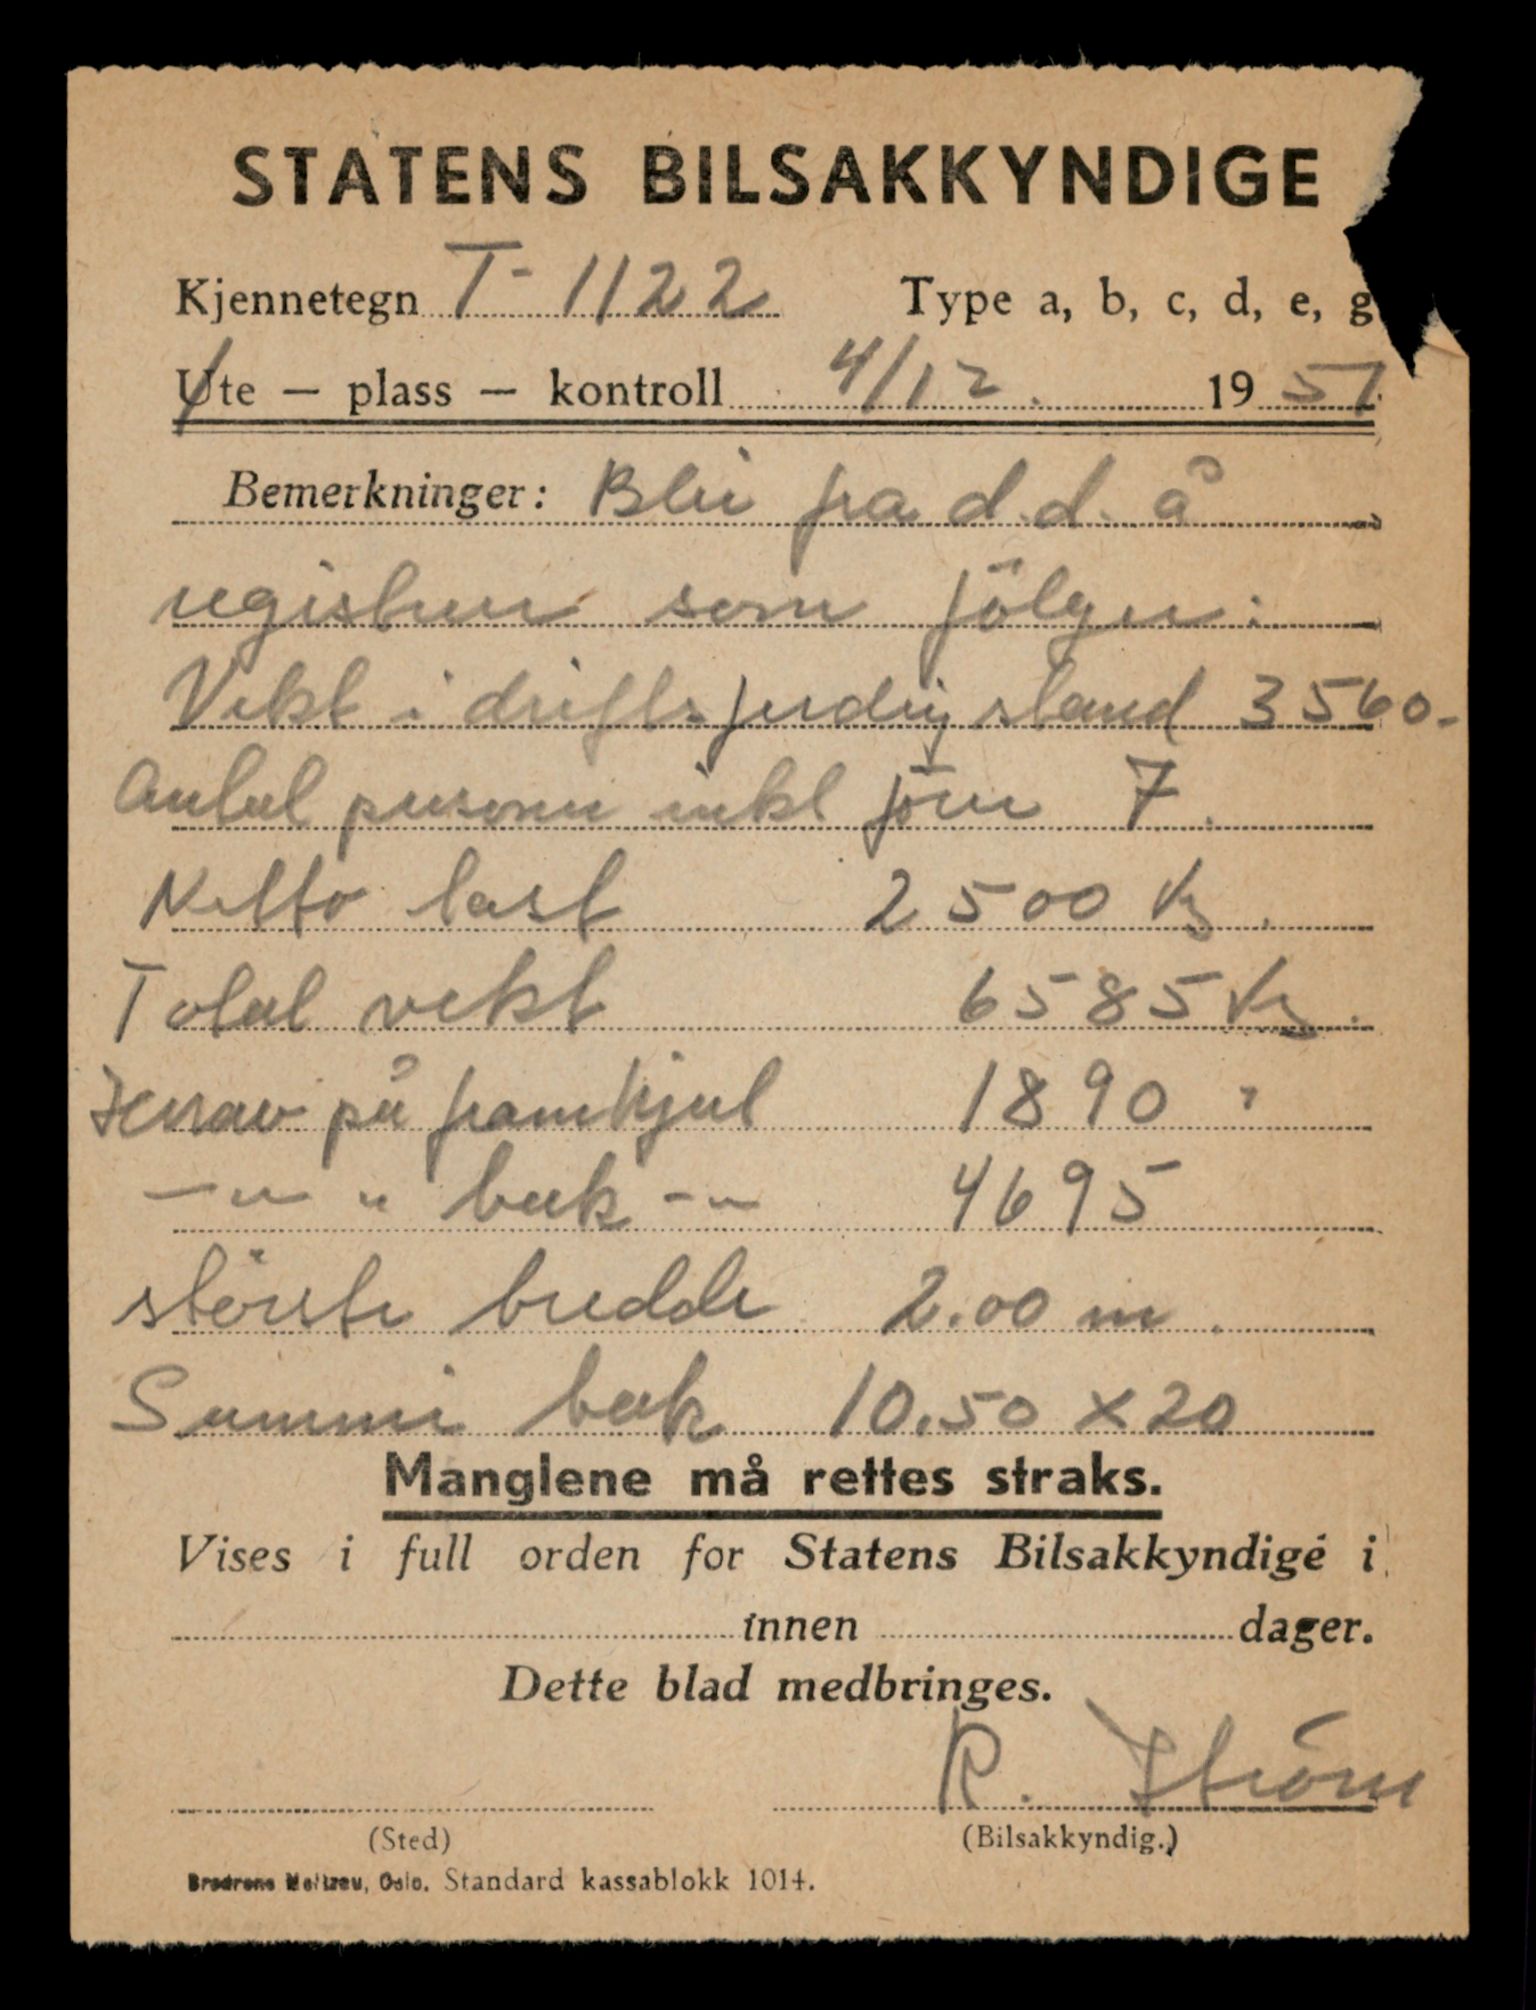 STATENS BILSAKKYNDIGE
Kjennetegn T-1122 Type a, b, c, d, e, g
Ute — plass — kontroll 4/12. 1951
Bemerkninger: Blir fra d.d. å
registrere som følger:
Vekt i driftsferdig stand 3560.-
Antal personer inkl fører 7.
Netto last 2500 kg.
Total vekt 6585 kg.
Herav på framhjul 1890 "
—"— " bak -"- 4695
største bredde 2.00 m.
Gummi bak 10.50 x 20
Manglene må rettes straks.
Vises i full orden for Statens Bilsakkyndige i
innen dager.
Dette blad medbringes.
R. Strøm
(Sted) (Bilsakkyndig.)
Brødrene Meltzeu, Oslo. Standard kassablokk 1014.